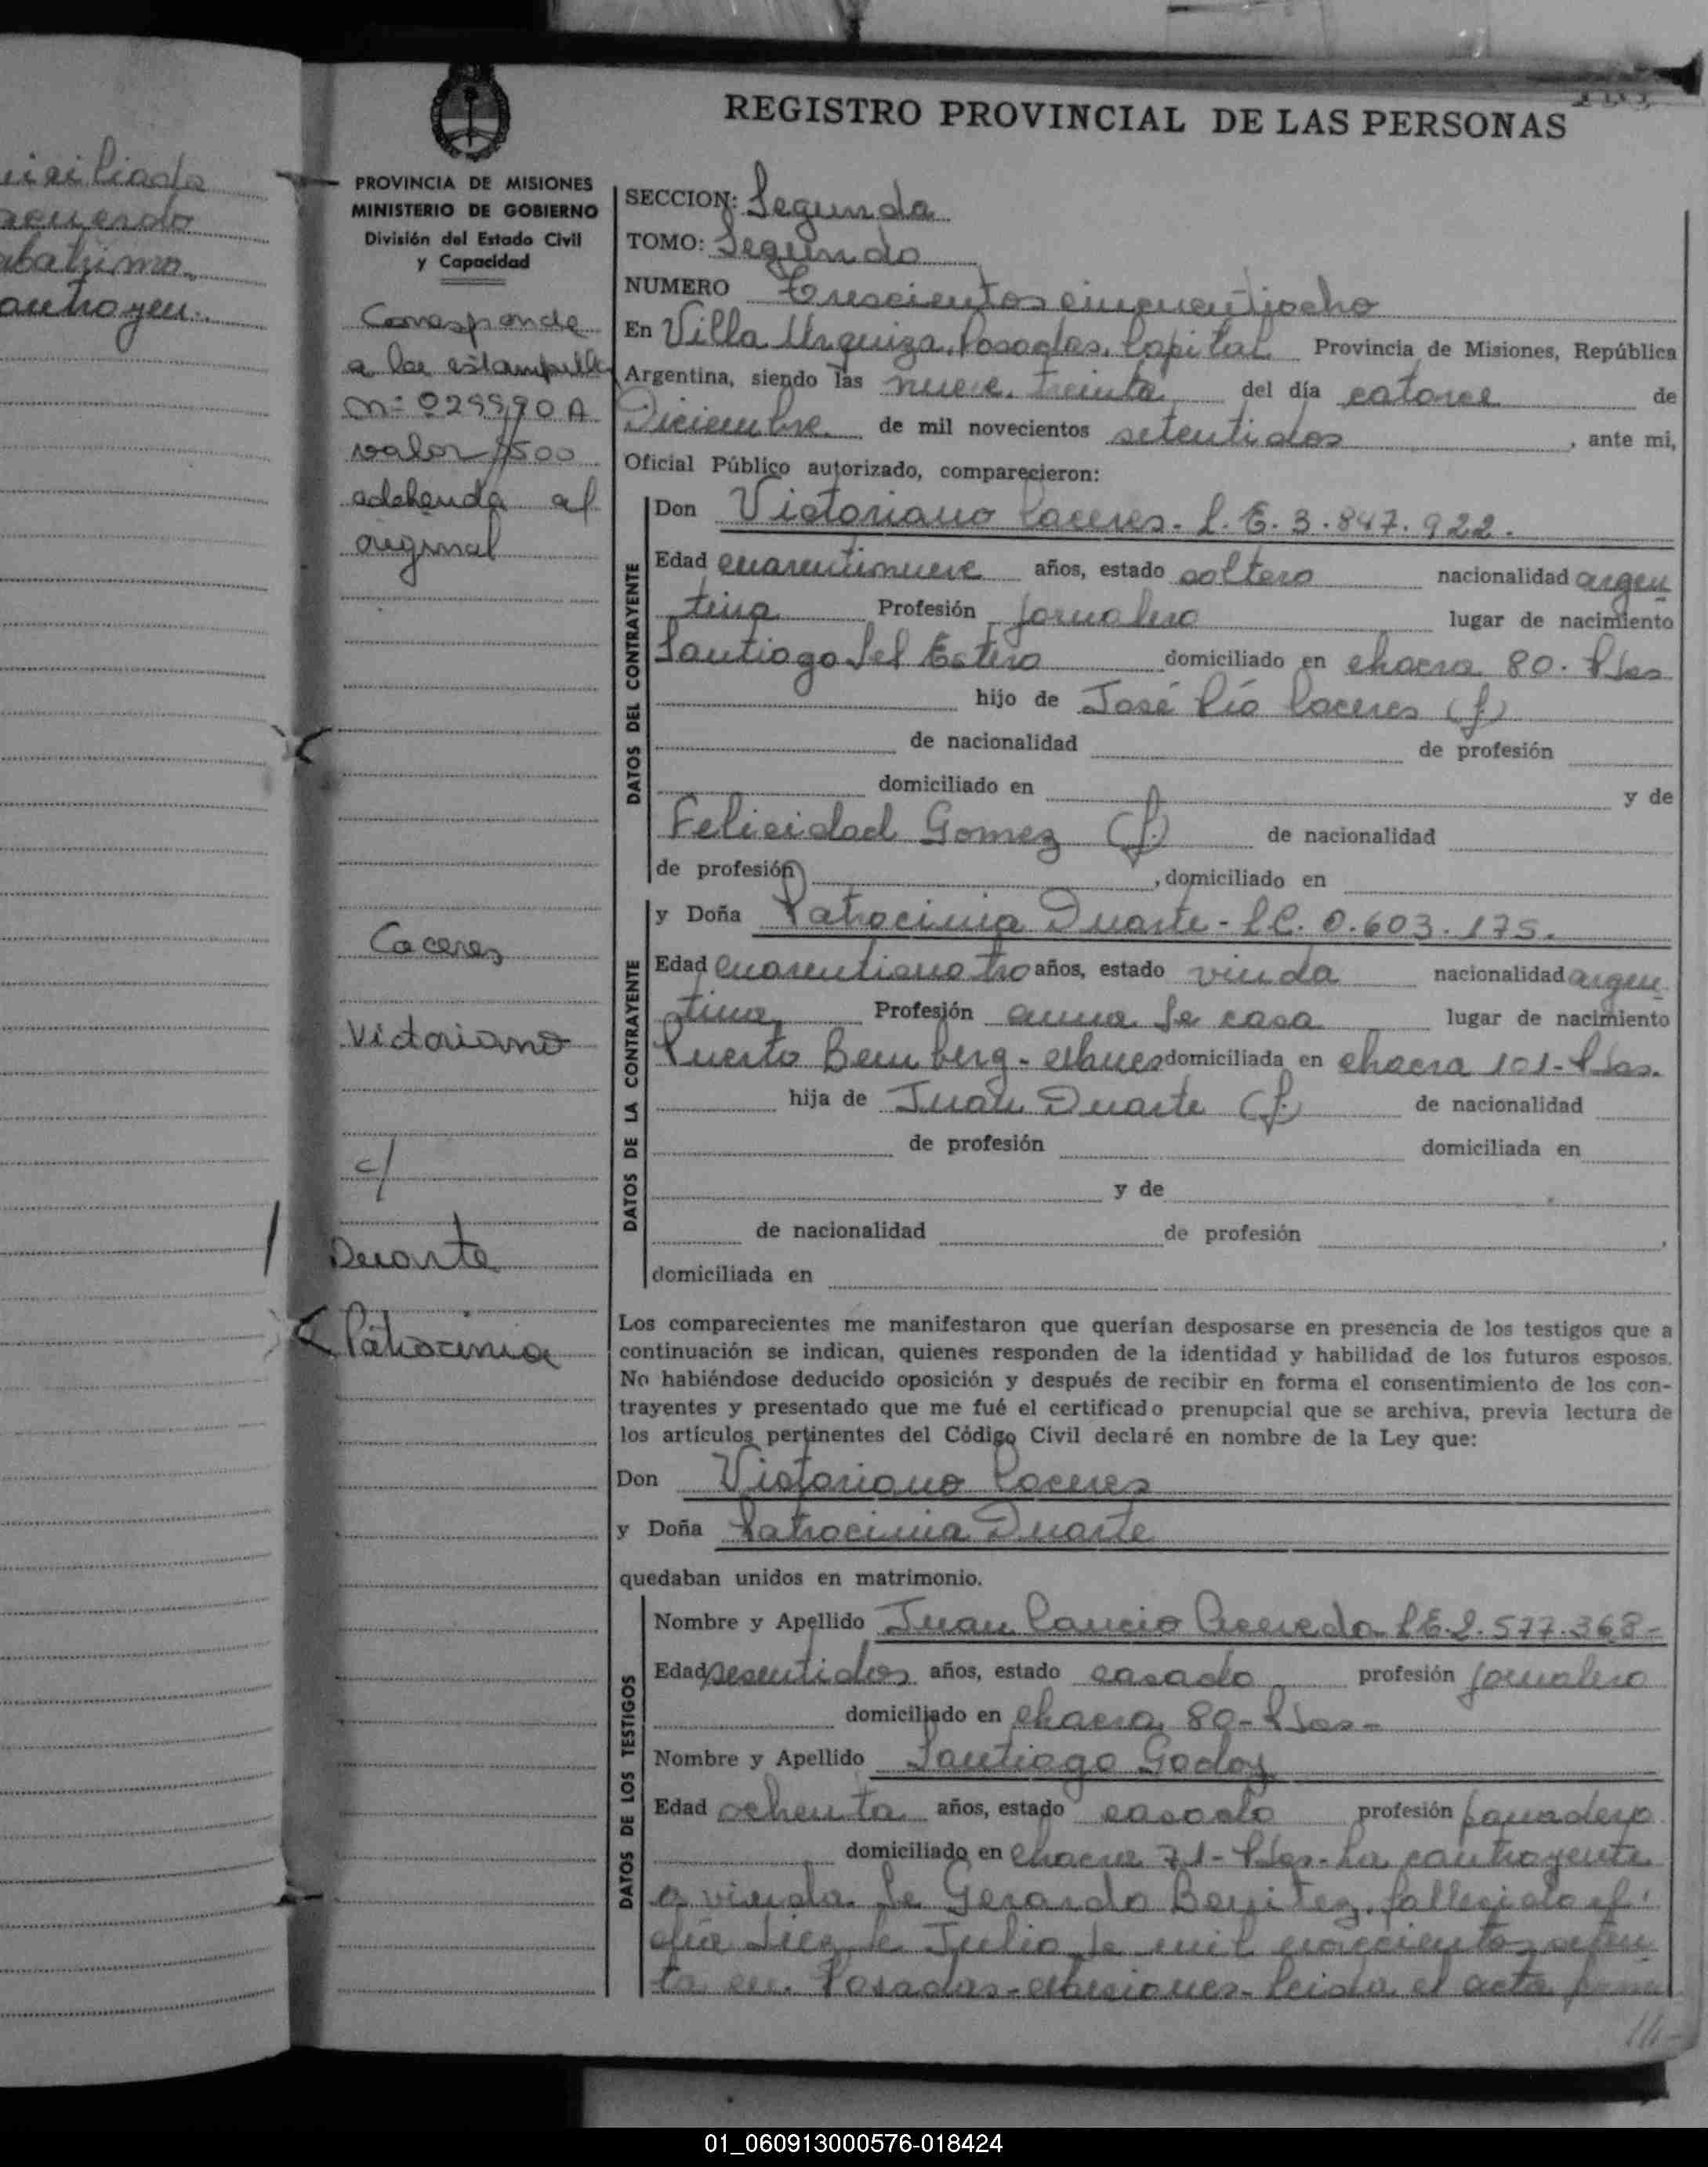 iciliado
acuerdo
abatimo
antrayen.
REGISTRO PROVINCIAL DE LAS PERSONAS
PROVINCIA DE MISIONES
MINISTERIO DE GOBIERNO
División del Estado Civil
y Capacidad
Corresponde
a la estampilla
nº 029990 A
valor $500
adehenda al
original
Caceres
Victoriano
c/
Duarte
Patrocinia
SECCION: Segunda
TOMO: Segundo
NUMERO Trescientos cincuentiocho
En Villa Urquiza, Posadas, Capital Provincia de Misiones, República
Argentina, siendo las nueve, treinta del día catorce de
Diciembre de mil novecientos setentidos, ante mi,
Oficial Público autorizado, comparecieron:
DATOS DEL CONTRAYENTE
Don Victoriano Caceres - L.E. 3.847.922.
Edad cuarentinueve años, estado soltero nacionalidad argen
tina Profesión jornalero lugar de nacimiento
Santiago del Estero domiciliado en chacra 80. Pdas
hijo de José Pío Caceres (f)
de nacionalidad de profesión
domiciliado en y de
Felicidad Gomez (f) de nacionalidad
de profesión , domiciliado en
DATOS DE LA CONTRAYENTE
y Doña Patrocinia Duarte - L.C. 0.603.175.
Edad cuarenticuatro años, estado viuda nacionalidad argen
tina Profesión ama de casa lugar de nacimiento
Puerto Bemberg - Mnes domiciliada en chacra 101 - Pdas.
hija de Juan Duarte (f.) de nacionalidad
de profesión domiciliada en
y de
de nacionalidad de profesión ,
domiciliada en
Los comparecientes me manifestaron que querían desposarse en presencia de los testigos que a
continuación se indican, quienes responden de la identidad y habilidad de los futuros esposos.
No habiéndose deducido oposición y después de recibir en forma el consentimiento de los con-
trayentes y presentado que me fué el certificado prenupcial que se archiva, previa lectura de
los artículos pertinentes del Código Civil declaré en nombre de la Ley que:
Don Victoriano Caceres
y Doña Patrocinia Duarte
quedaban unidos en matrimonio.
DATOS DE LOS TESTIGOS
Nombre y Apellido Juan Cancio Acevedo L.E. 2.577.368-
Edad sesentidos años, estado casado profesión jornalero
domiciliado en chacra 80 - Pdas -
Nombre y Apellido Santiago Godoy
Edad ochenta años, estado casado profesión panadero
domiciliado en chacra 71 - Pdas - La contrayente
es viuda de Gerardo Benitez, fallecido el
día diez de Julio de mil novecientos seten
ta en Posadas - Misiones - Leida el acta
///-
01_060913000576-018424